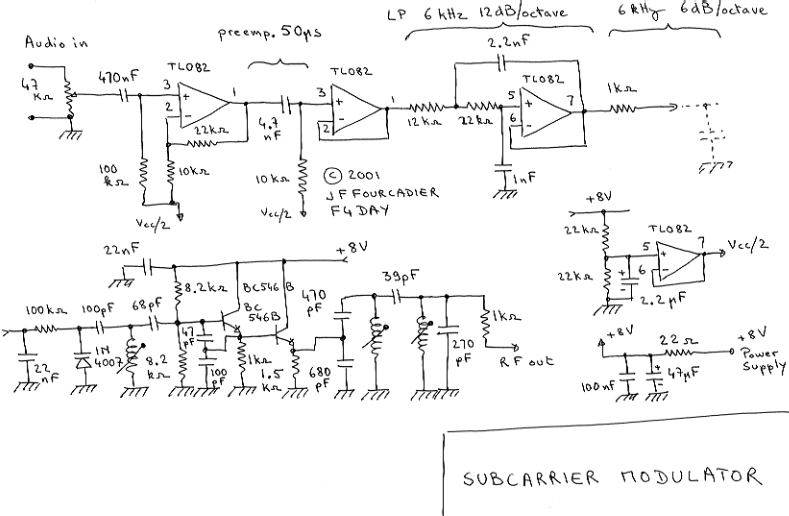 LP 6 kHz 12dB/octave
6 kHz 6dB/octave
Audio in
preemp. 50µs
2.2nF
TL082
TL082
TL082
47
KΩ
470nF
3
2
1
22kΩ
4.7
nF
3
2
1
12kΩ
22kΩ
5
6
7
1kΩ
100
kΩ
10kΩ
Vcc/2
10kΩ
Vcc/2
© 2001
JF FOURCADIER
F4DAY
1nF
+8V
22kΩ
TL082
5
6
7
Vcc/2
22kΩ
2.2µF
22nF
+8V
8.2kΩ
BC546B
BC
546B
470
pF
39pF
100kΩ
100pF
68pF
47
pF
1kΩ
22
nF
1N
4007
8.2
kΩ
100
pF
1kΩ
1.5
kΩ
680
pF
270
pF
RF out
+8V
22Ω
+8V
Power
Supply
100nF
47µF
SUBCARRIER MODULATOR